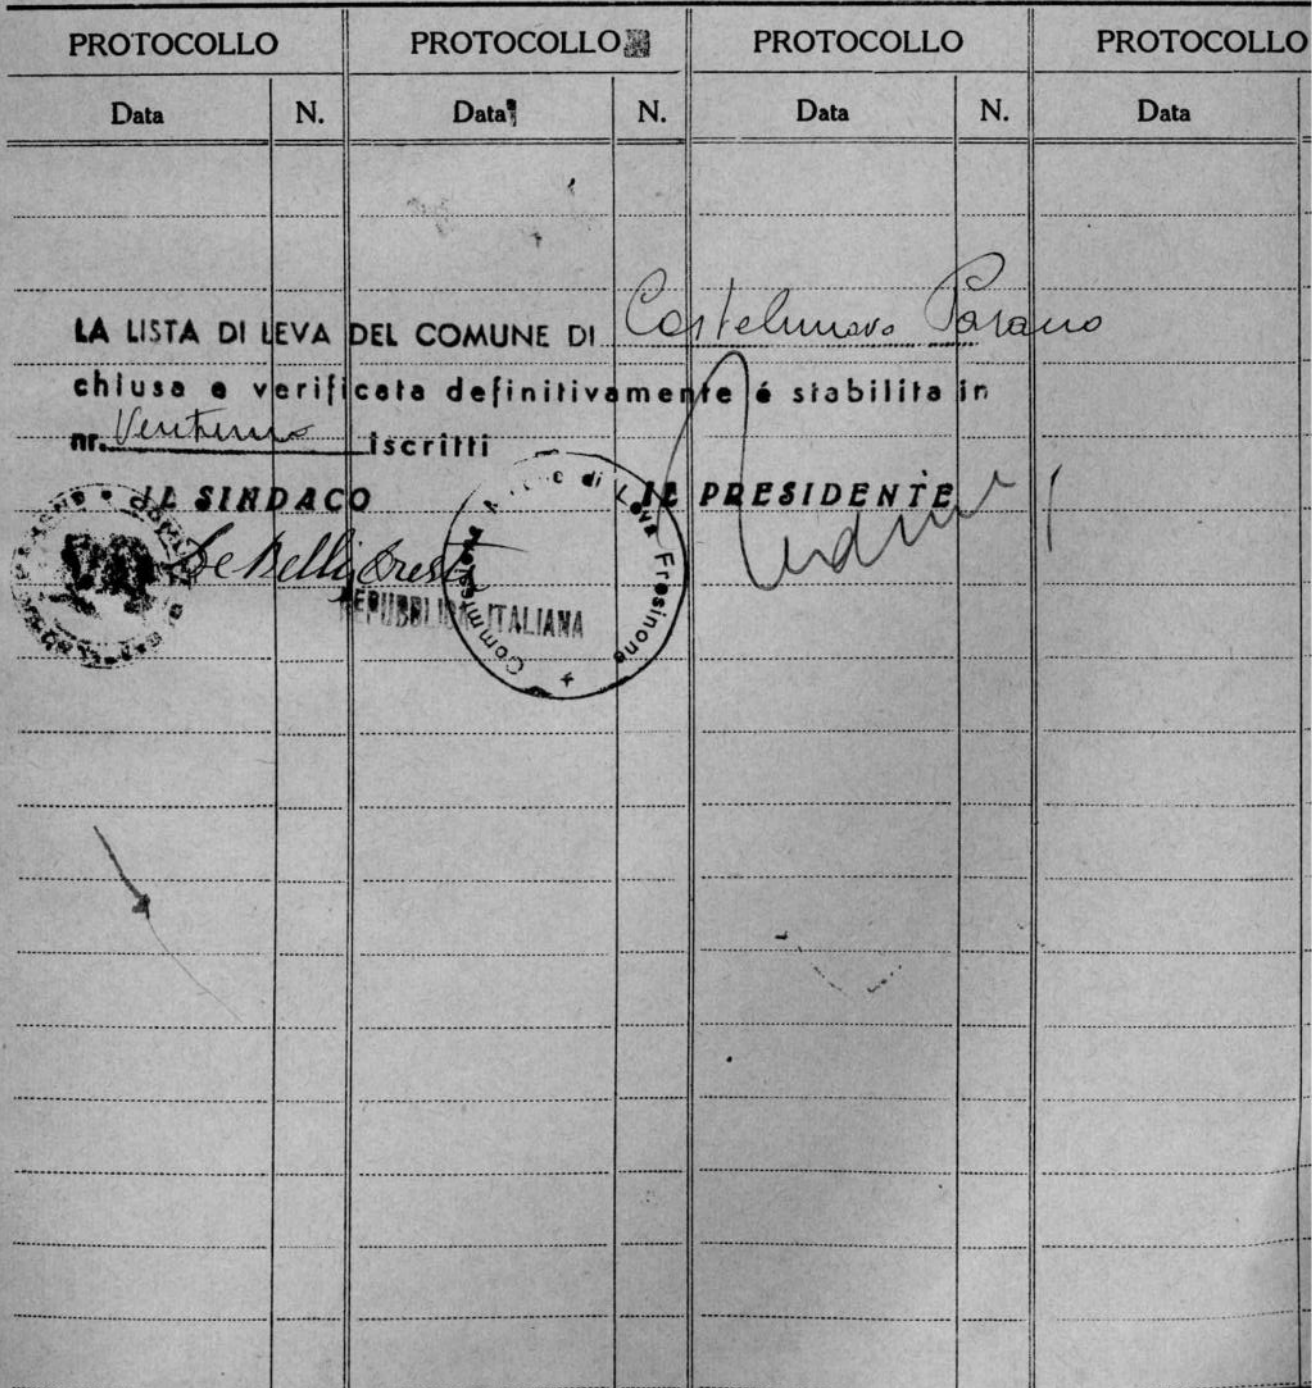 PROTOCOLLO PROTOCOLLO PROTOCOLLO PROTOCOLLO
Data N. Data N. Data N. Data
LA LISTA DI LEVA DEL COMUNE DI Castelnuovo Parano
chiusa e verificata definitivamente é stabilita in
nr. Ventuno iscritti
IL SINDACO IL PRESIDENTE
De Bellis Oreste
REPUBBLICA ITALIANA
di Leva Frosinone